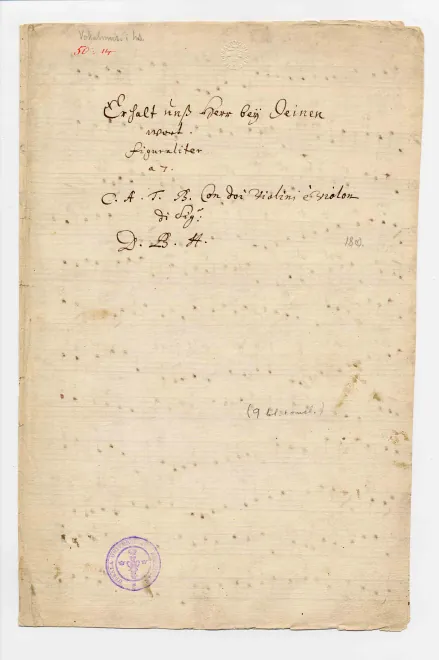 Vokalmusik i hdskr.
50:14
Erhalt unß Herr bey Deinen
wort.
figuraliter
a 7.
C. A. T. B. Con doi Violini è violon
di Sigr:
D. B. H.